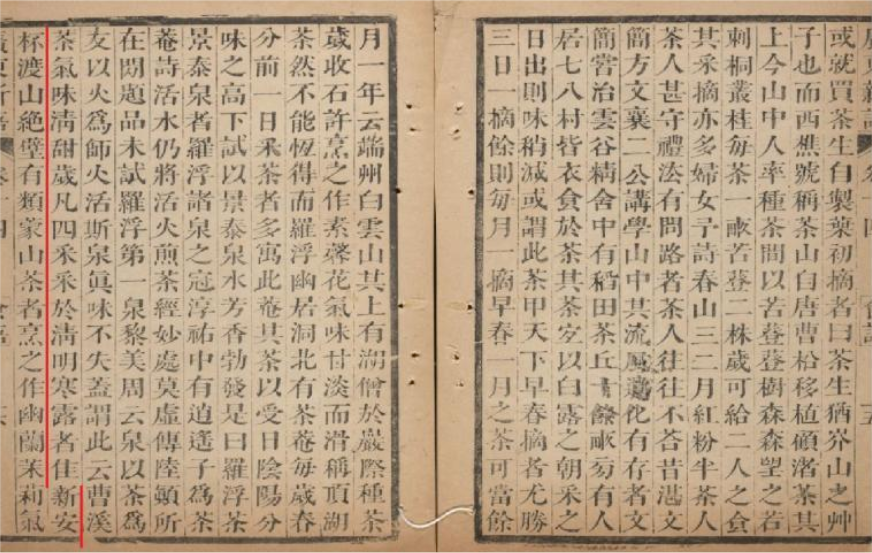 廣東新語 卷十四 食語 五
或就買茶生自製葉初摘者曰茶生猶岕山之艸
子也而西樵號稱茶山自唐曹松移植顧渚茶其
上今山中人率種茶間以苦登登樹森森望之若
刺桐叢桂每茶一畝苦登二株歲可給二人之食
其采摘亦多婦女予詩春山三二月紅粉半茶人
茶人甚守禮法有問路者茶人往往不荅昔湛文
簡方文襄二公講學山中其流風遺化有存者文
簡嘗治雲谷精舍中有稻田茶丘十餘畝旁有人
居七八村皆衣食於茶其茶宜以白露之朝采之
日出則味稍減或謂此茶甲天下早春摘者尤勝
三日一摘餘則每月一摘早春一月之茶可當餘
月一年云端州白雲山其上有湖僧於巖際種茶
歲收石許烹之作素馨花氣味甘淡而滑稱頂湖
茶然不能恆得而羅浮幽居洞北有茶菴每歲春
分前一日采茶者多寓此菴其茶以受日陰陽分
味之高下試以景泰泉水芳香勃發是曰羅浮茶
景泰泉者羅浮諸泉之冠淳祐中有逍遙子爲茶
菴詩活水仍將活火煎茶經妙處莫虛傳陸顛所
在閑題品未試羅浮第一泉黎美周云泉以茶爲
友以火爲師火活斯泉眞味不失蓋謂此云曹溪
茶氣味清甜歲凡四采采於清明寒露者佳新安
杯渡山絕壁有類蒙山茶者烹之作幽蘭茉莉氣
廣東新語 卷十四 食語